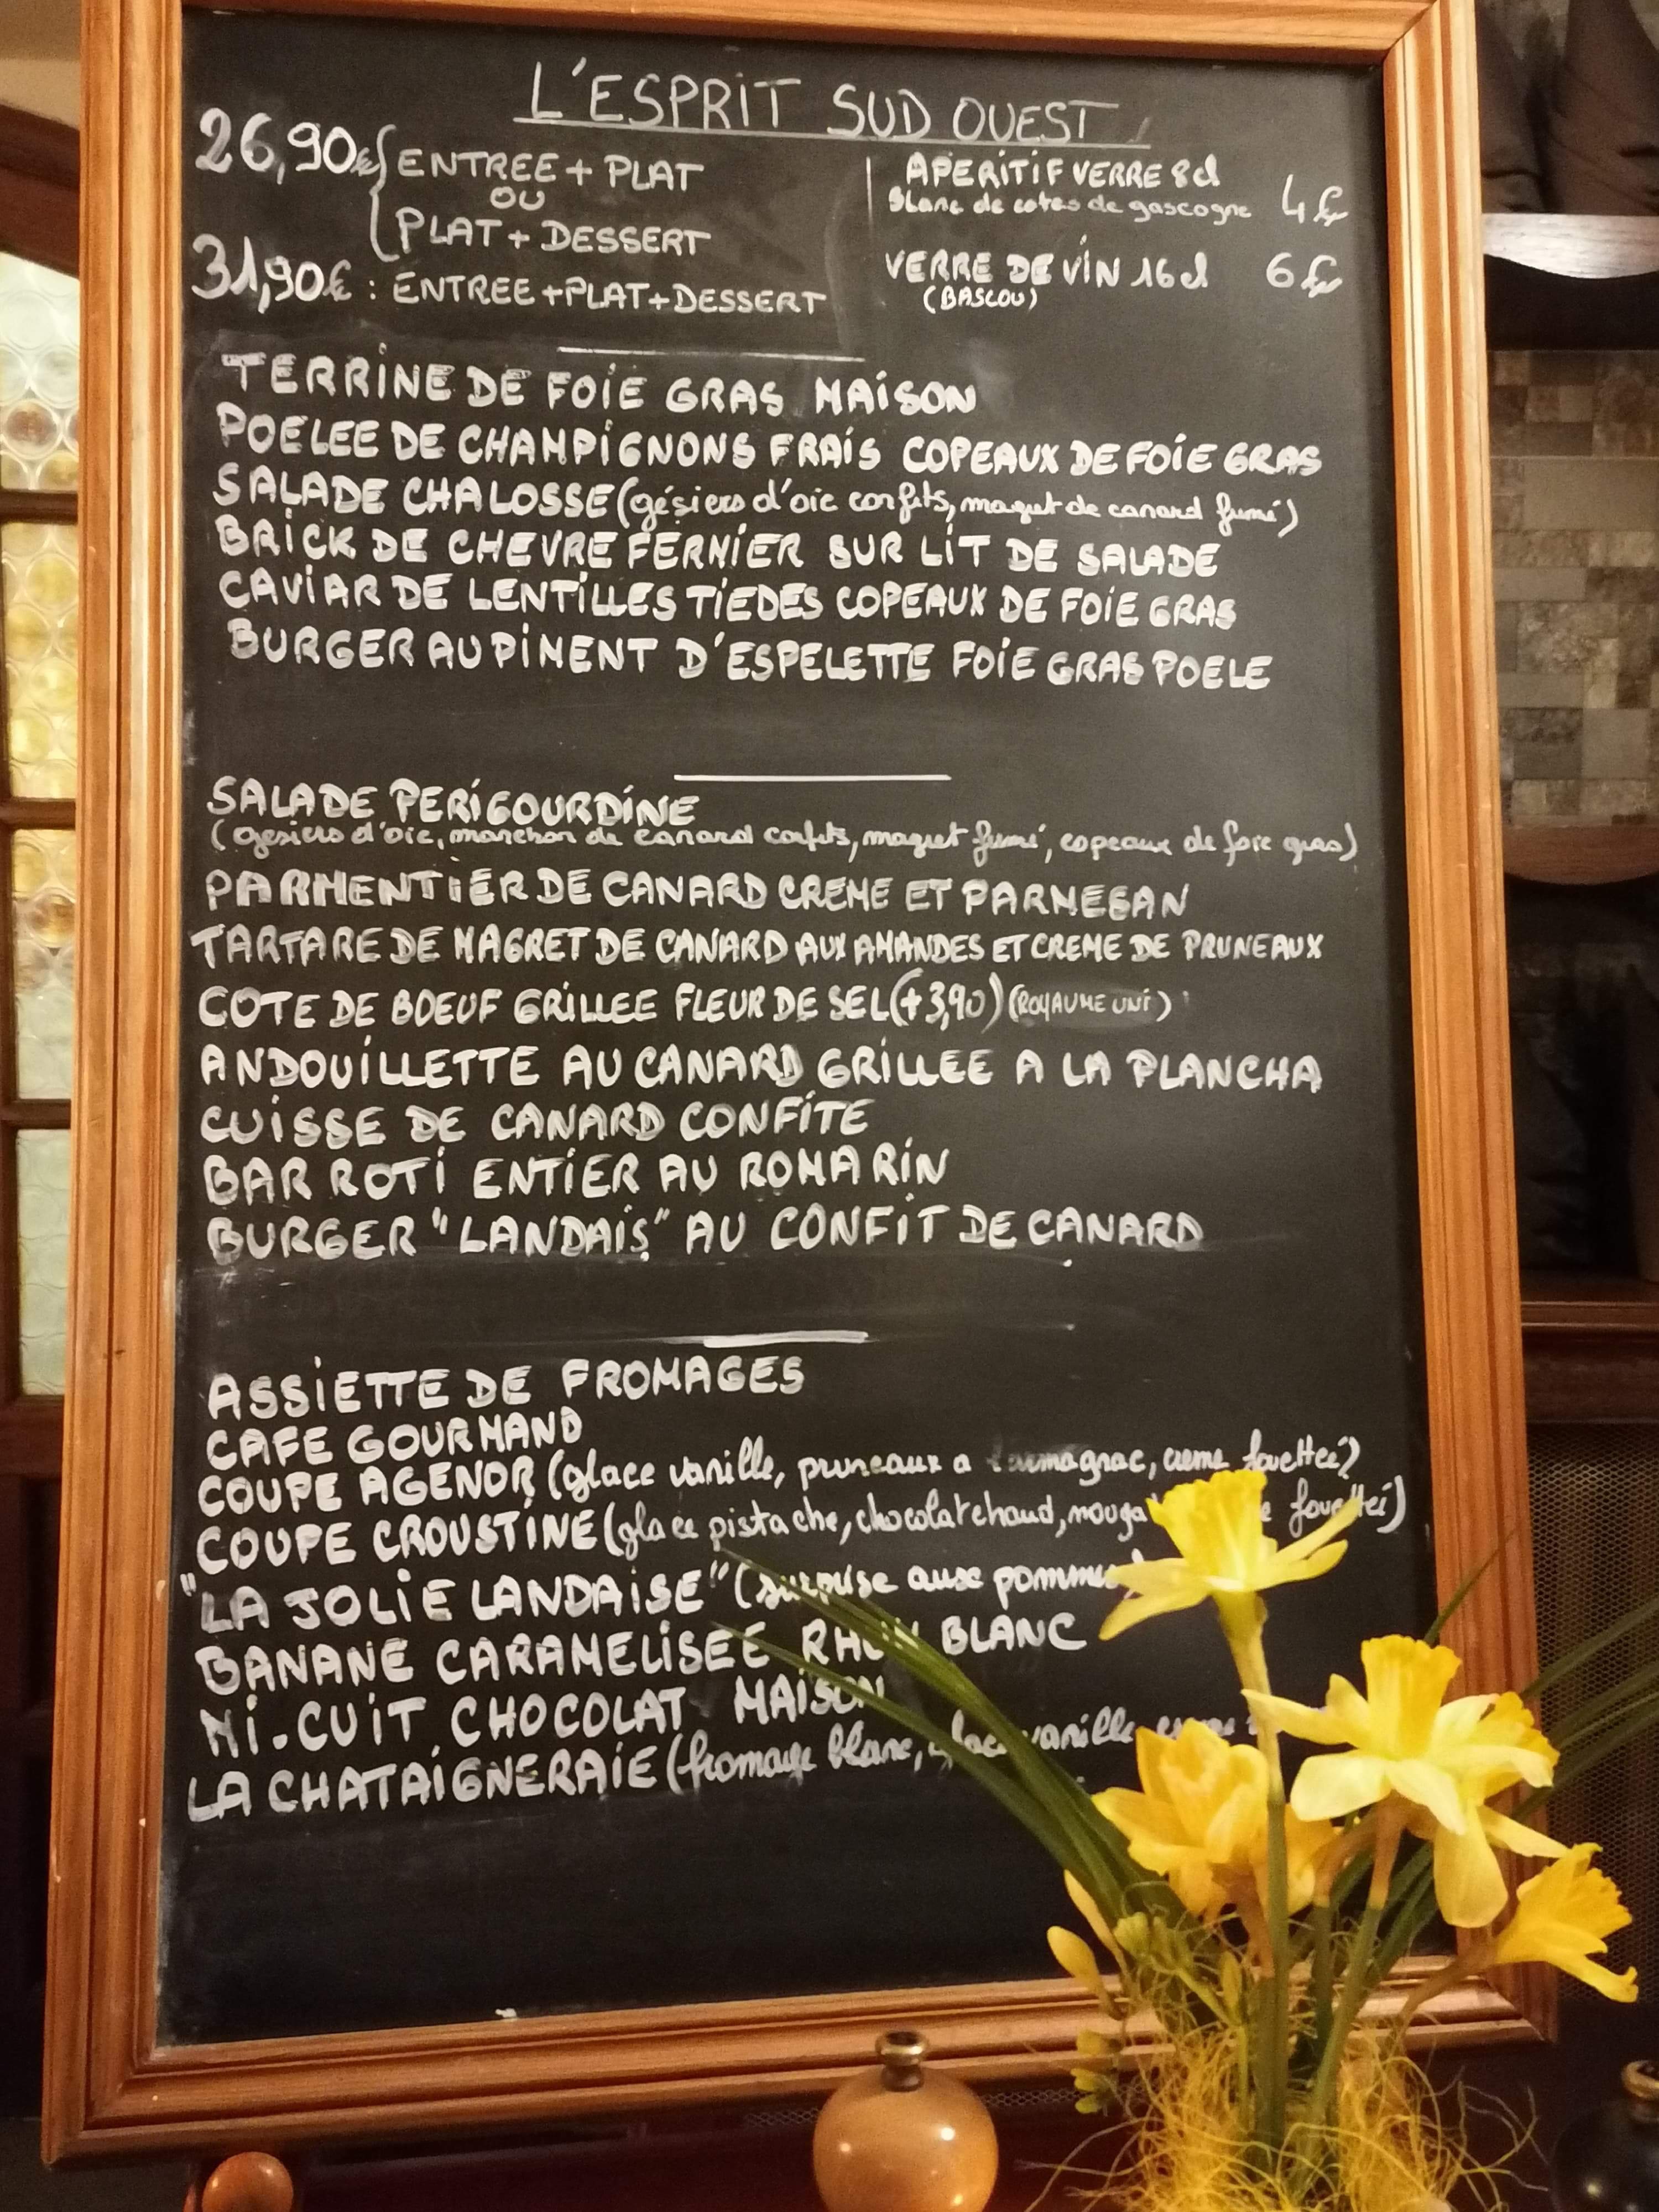 L'ESPRIT SUD OUEST
26,90€ { ENTREE + PLAT
OU
PLAT + DESSERT
31,90€ : ENTREE + PLAT + DESSERT
APERITIF VERRE 8cl
blanc de cotes de gascogne 4€
VERRE DE VIN 16cl 6€
(BASCOU)
TERRINE DE FOIE GRAS MAISON
POELEE DE CHAMPIGNONS FRAIS COPEAUX DE FOIE GRAS
SALADE CHALOSSE (gésiers d'oie confits, magret de canard fumé)
BRICK DE CHEVRE FERMIER SUR LIT DE SALADE
CAVIAR DE LENTILLES TIEDES COPEAUX DE FOIE GRAS
BURGER AU PIMENT D'ESPELETTE FOIE GRAS POELE
SALADE PERIGOURDINE
(gesiers d'oie, manchon de canard confits, magret fumé, copeaux de foie gras)
PARMENTIER DE CANARD CREME ET PARMESAN
TARTARE DE MAGRET DE CANARD AUX AMANDES ET CREME DE PRUNEAUX
COTE DE BOEUF GRILLEE FLEUR DE SEL (+3,90) (ROYAUME UNI)
ANDOUILLETTE AU CANARD GRILLEE A LA PLANCHA
CUISSE DE CANARD CONFITE
BAR ROTI ENTIER AU ROMARIN
BURGER "LANDAIS" AU CONFIT DE CANARD
ASSIETTE DE FROMAGES
CAFE GOURMAND
COUPE AGENOR (glace vanille, pruneaux a l'armagnac, creme fouetteé)
COUPE CROUSTINE (glace pistache, chocolat chaud, fouetteé)
"LA JOLIE LANDAISE" (surprise aux pommes)
BANANE CARAMELISEE RHUM BLANC
MI-CUIT CHOCOLAT MAISON
LA CHATAIGNERAIE (fromage blanc, glace vanille